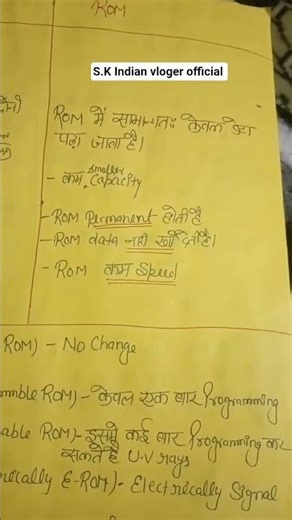 ROM
S.K Indian vloger official
ROM में सामान्यतः केवल डेटा
पढ़ा जाता है।
smaller
- कम Capacity
- ROM Permanent होती है
- ROM data नही खोती है।
- ROM कम Speed
ROM) - No Change
mmble ROM) - केवल एक बार Programming
able ROM) - इसमे कई बार Programming कर
सकते है U.V rays
rically E-ROM) - Electrically Signal